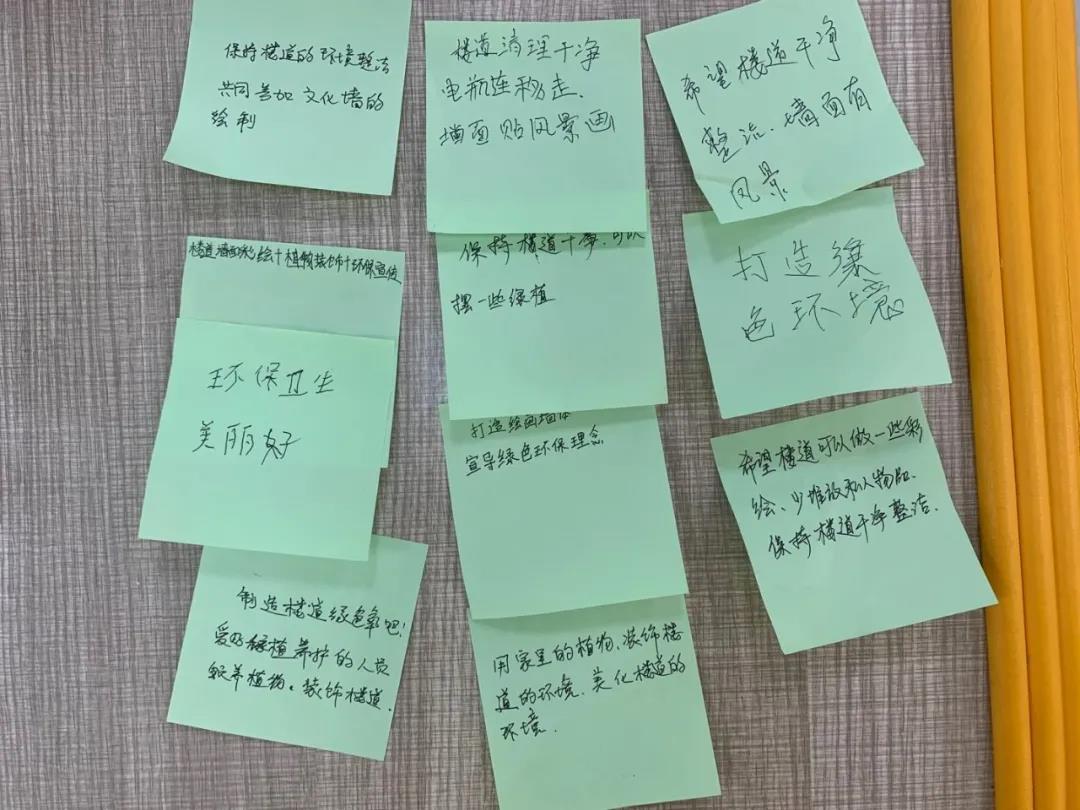 保持楼道的环境整洁
共同参加文化墙的
绘制
楼道墙面彩绘+植物装饰+环保宣传
环保卫生
美丽好
制造楼道绿色氧吧!
爱好绿植养护的人员
领养植物。装饰楼道.
楼道清理干净
电瓶连移走.
墙面贴风景画
保持楼道干净.可以
摆一些绿植
打造绘画墙体
宣导绿色环保理念
用家里的植物、装饰楼
道的环境.美化楼道的
环境.
希望楼道干净
整洁.墙面有
风景
打造绿
色环境
希望楼道可以做一些彩
绘、少堆放私人物品.
保持楼道干净整洁.